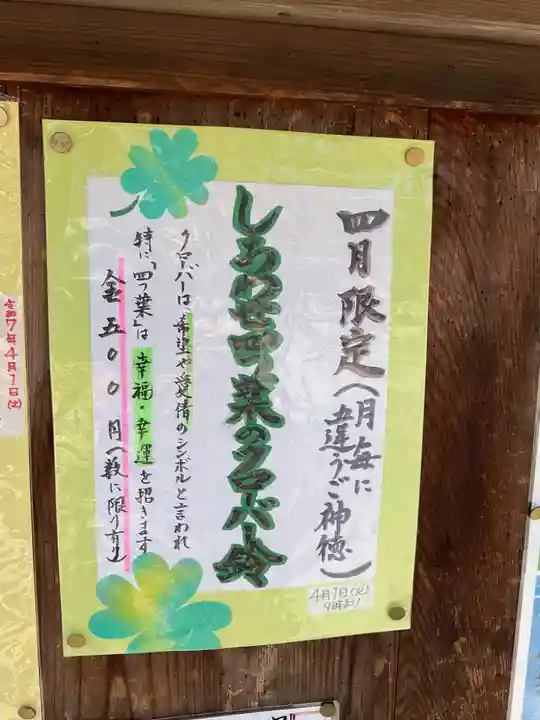 四月限定(月毎に違うご神徳)
しあわせ四つ葉のクローバー鈴
クローバーは、希望や愛情のシンボルと言われ
特に「四つ葉」は幸福・幸運を招きます
金五〇〇円(数に限り有り)
4月1日(火)
9時より
令和7年4月1日(火)